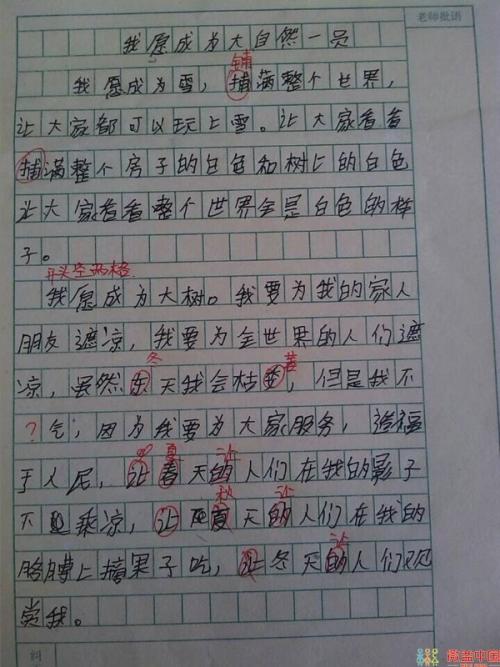 老师批语
我愿成为大自然一员
铺
我愿成为雪，捕满整个世界，
让大家都可以玩上雪。让大家看看
捕满整个房子的白色和树上的白色
让大家看看整个世界全是白色的样
子。
开头空两格
我愿成为大树。我要为我的家人
朋友遮凉，我要为全世界的人们遮
冬
凉，虽然东天我会枯，但是我不
？气，因为我要为大家服务，造福
夏 让
于人民，让春天的人们在我的影子
秋 让
不 乘凉，让夏天的人们在我的
让
胳膊上摘果子吃，让冬天的人们观
赏我。
微盖中国